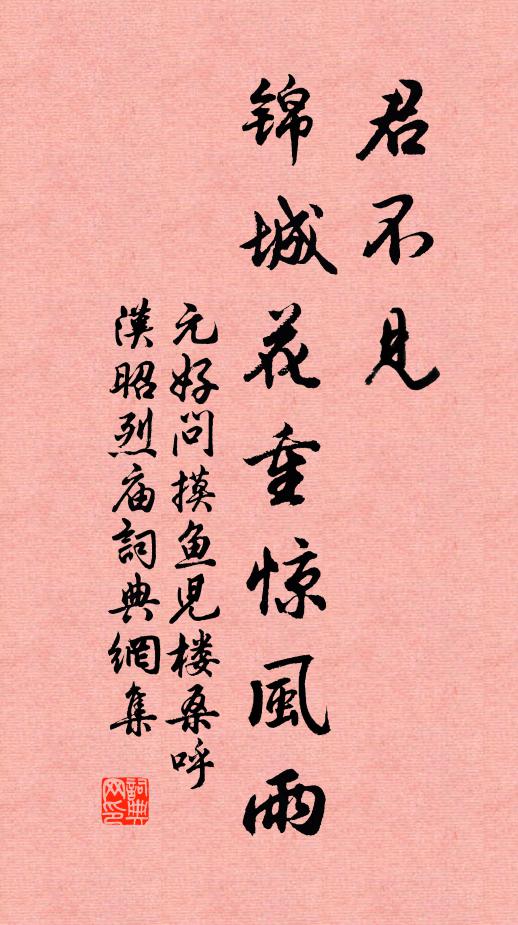 君不见
锦城花重惊風雨
元好问摸鱼児楼桑呼
漢昭烈庙詞典網集
詞典网印